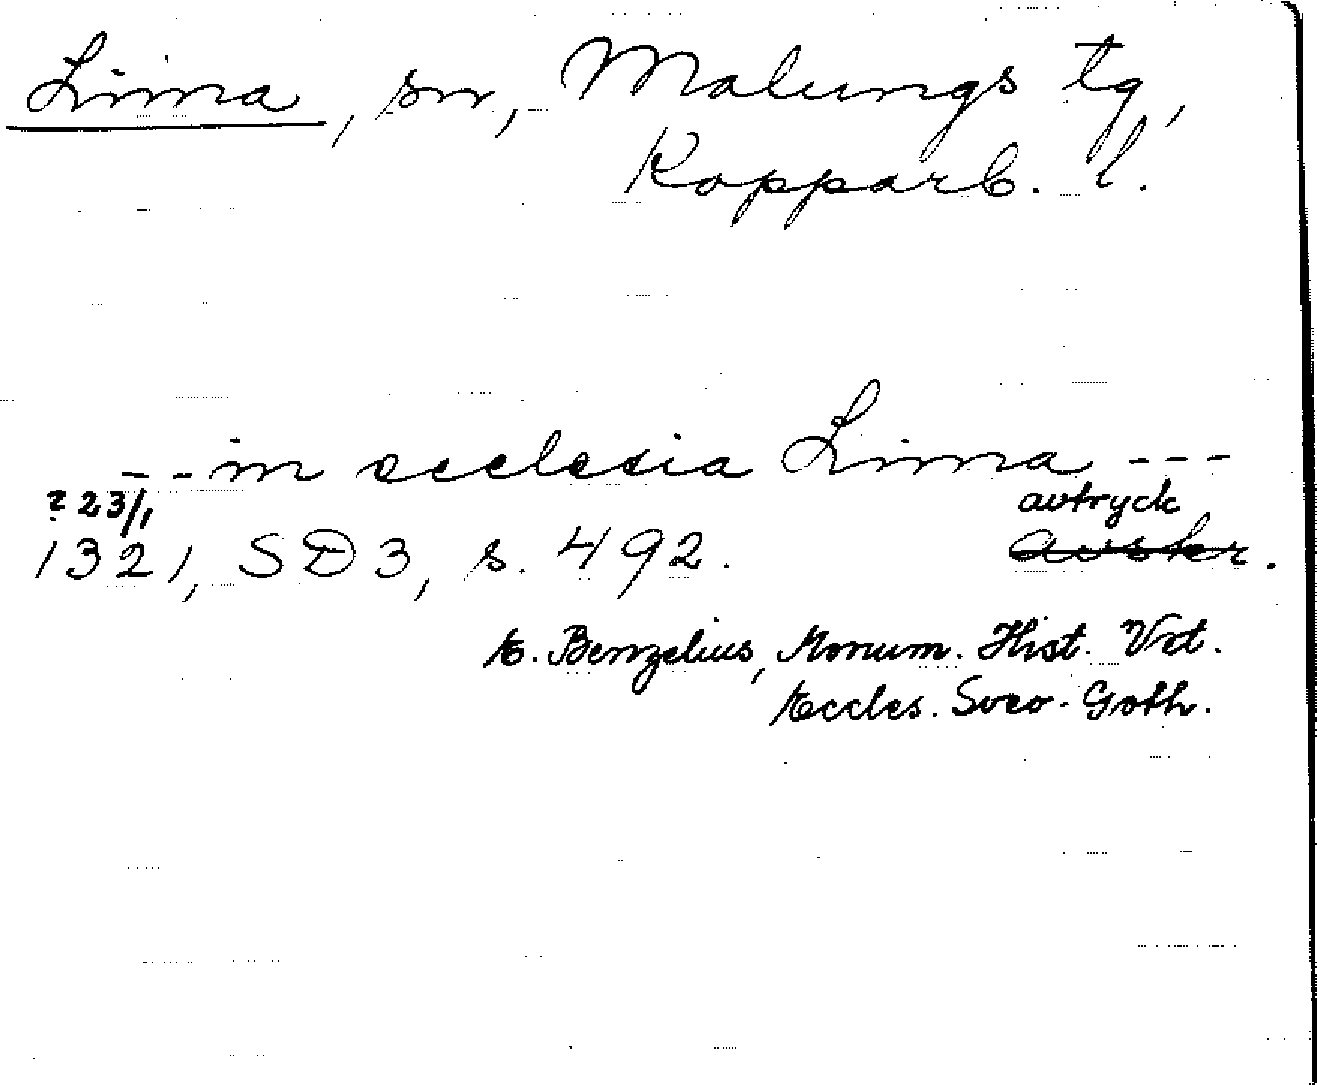 Lima, sn, Malungs tg,
Kopparb. l.
- - in ecclesia Lima - - -
? 23/1 avtryck
1321, SD 3, s. 492. avskr.
E. Benzelius, Monum. Hist. Vet.
Eccles. Sveo-Goth.